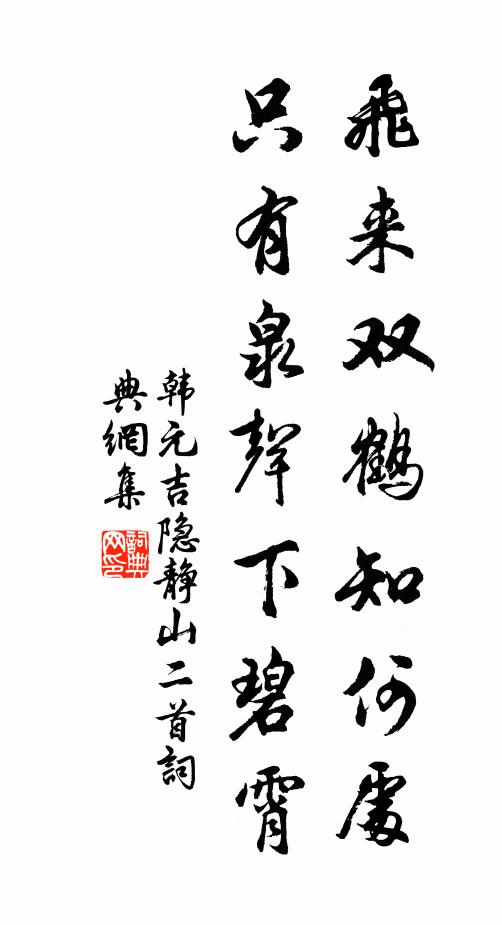 飛来双鶴知何處
只有泉聲下碧霄
韩元吉隐静山二首詞
典網集
詞典网印